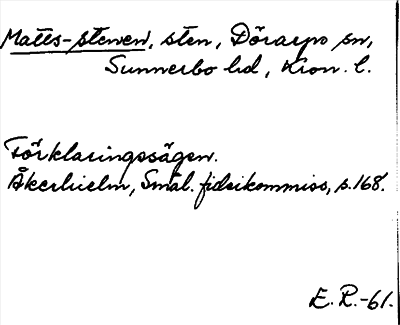 Matts-stenen, sten, Dörarps sn,
Sunnerbo hd, Kron. l.
Förklaringssägen.
Åkerhielm, Smål. fideikommiss, s. 168.
E. R. -61.